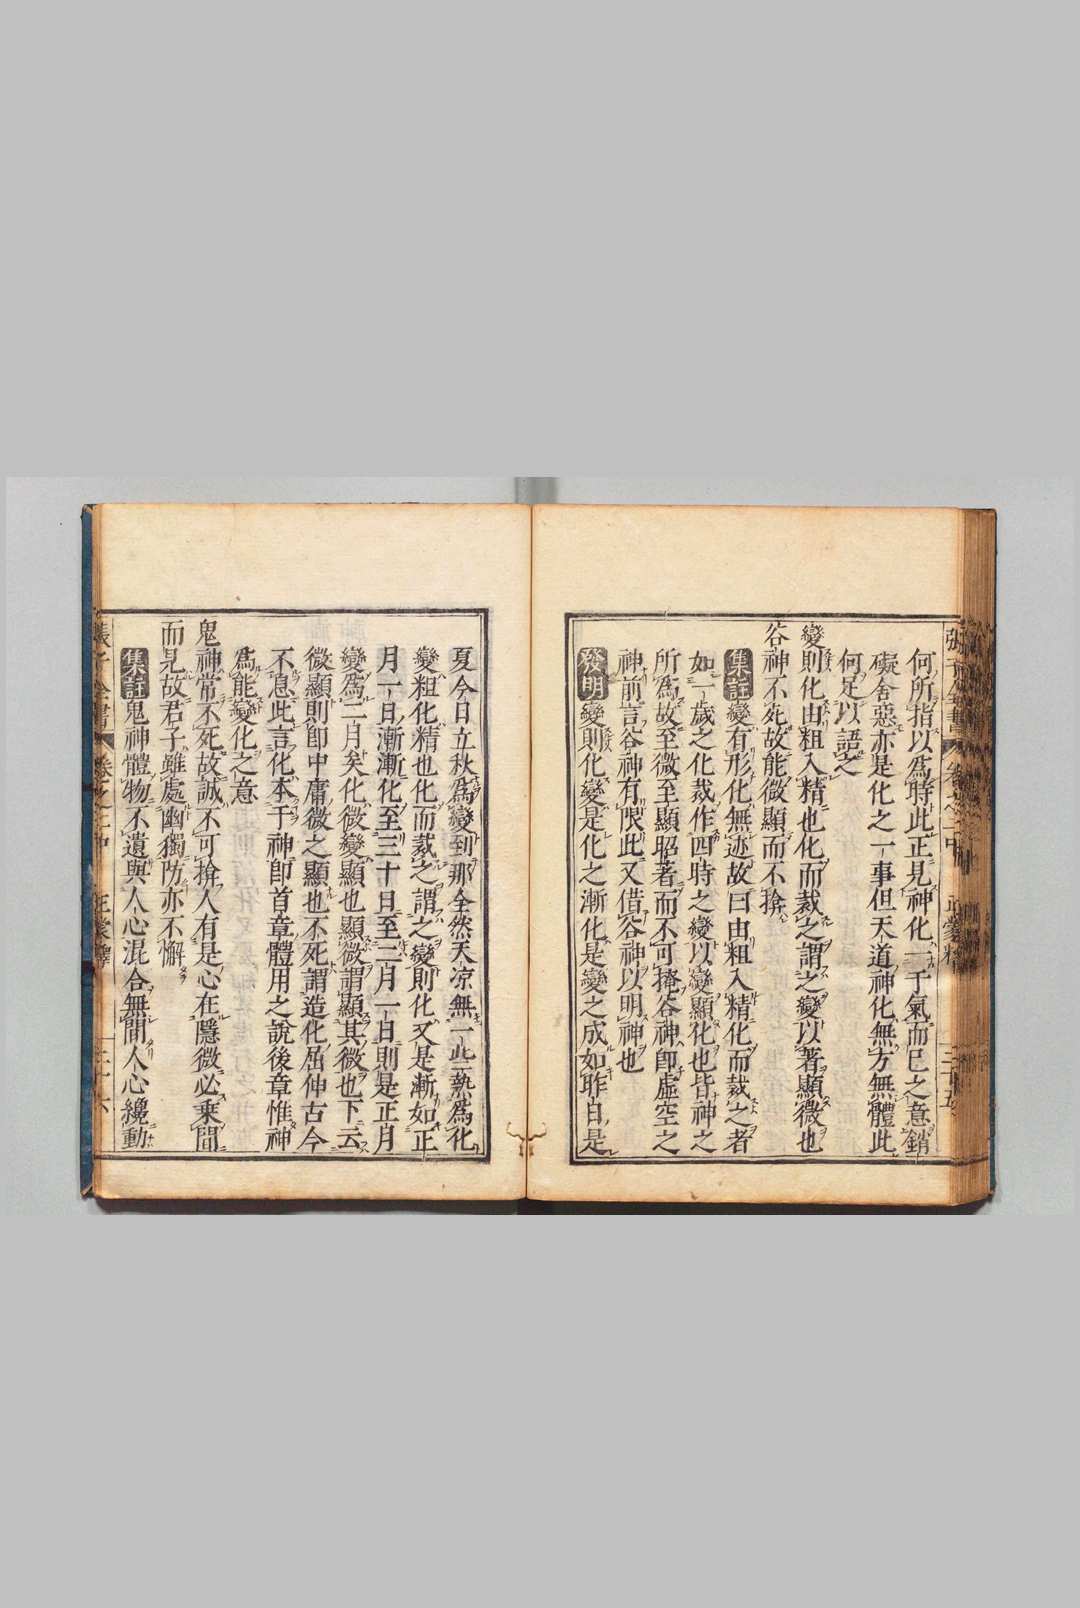 何所指以爲時此正見神化一于氣而已之意銷
礙舍惡亦是化之一事但天道神化無方無體此
何足以語之
變則化由粗入精也化而裁之謂之變以著顯微也
谷神不死故能微顯而不揜
集註變有形化無迹故曰由粗入精化而裁之者
如一歲之化裁作四時之變以變顯化也皆神之
所爲故至微至顯昭著而不可掩谷神卽虛空之
神前言谷神有限此又借谷神以明神也
發明變則化變是化之漸化是變之成如昨日是
夏今日立秋爲變到那全然天凉無一些熱爲化
變粗化精也化而裁之謂之變則化又是漸如正
月一日漸漸化至三十日至二月一日則是正月
變爲二月矣化微變顯也顯微謂顯其微也下云
微顯則卽中庸微之顯也不死謂造化屈伸古今
不息此言化本于神卽首章體用之說後章惟神
爲能變化之意
鬼神常不死故誠不可揜人有是心在隱微必乘間
而見故君子雖處幽獨防亦不懈
集註鬼神體物不遺與人心混合無間人心纔動
張子全書 卷之三中 正蒙釋 二十六